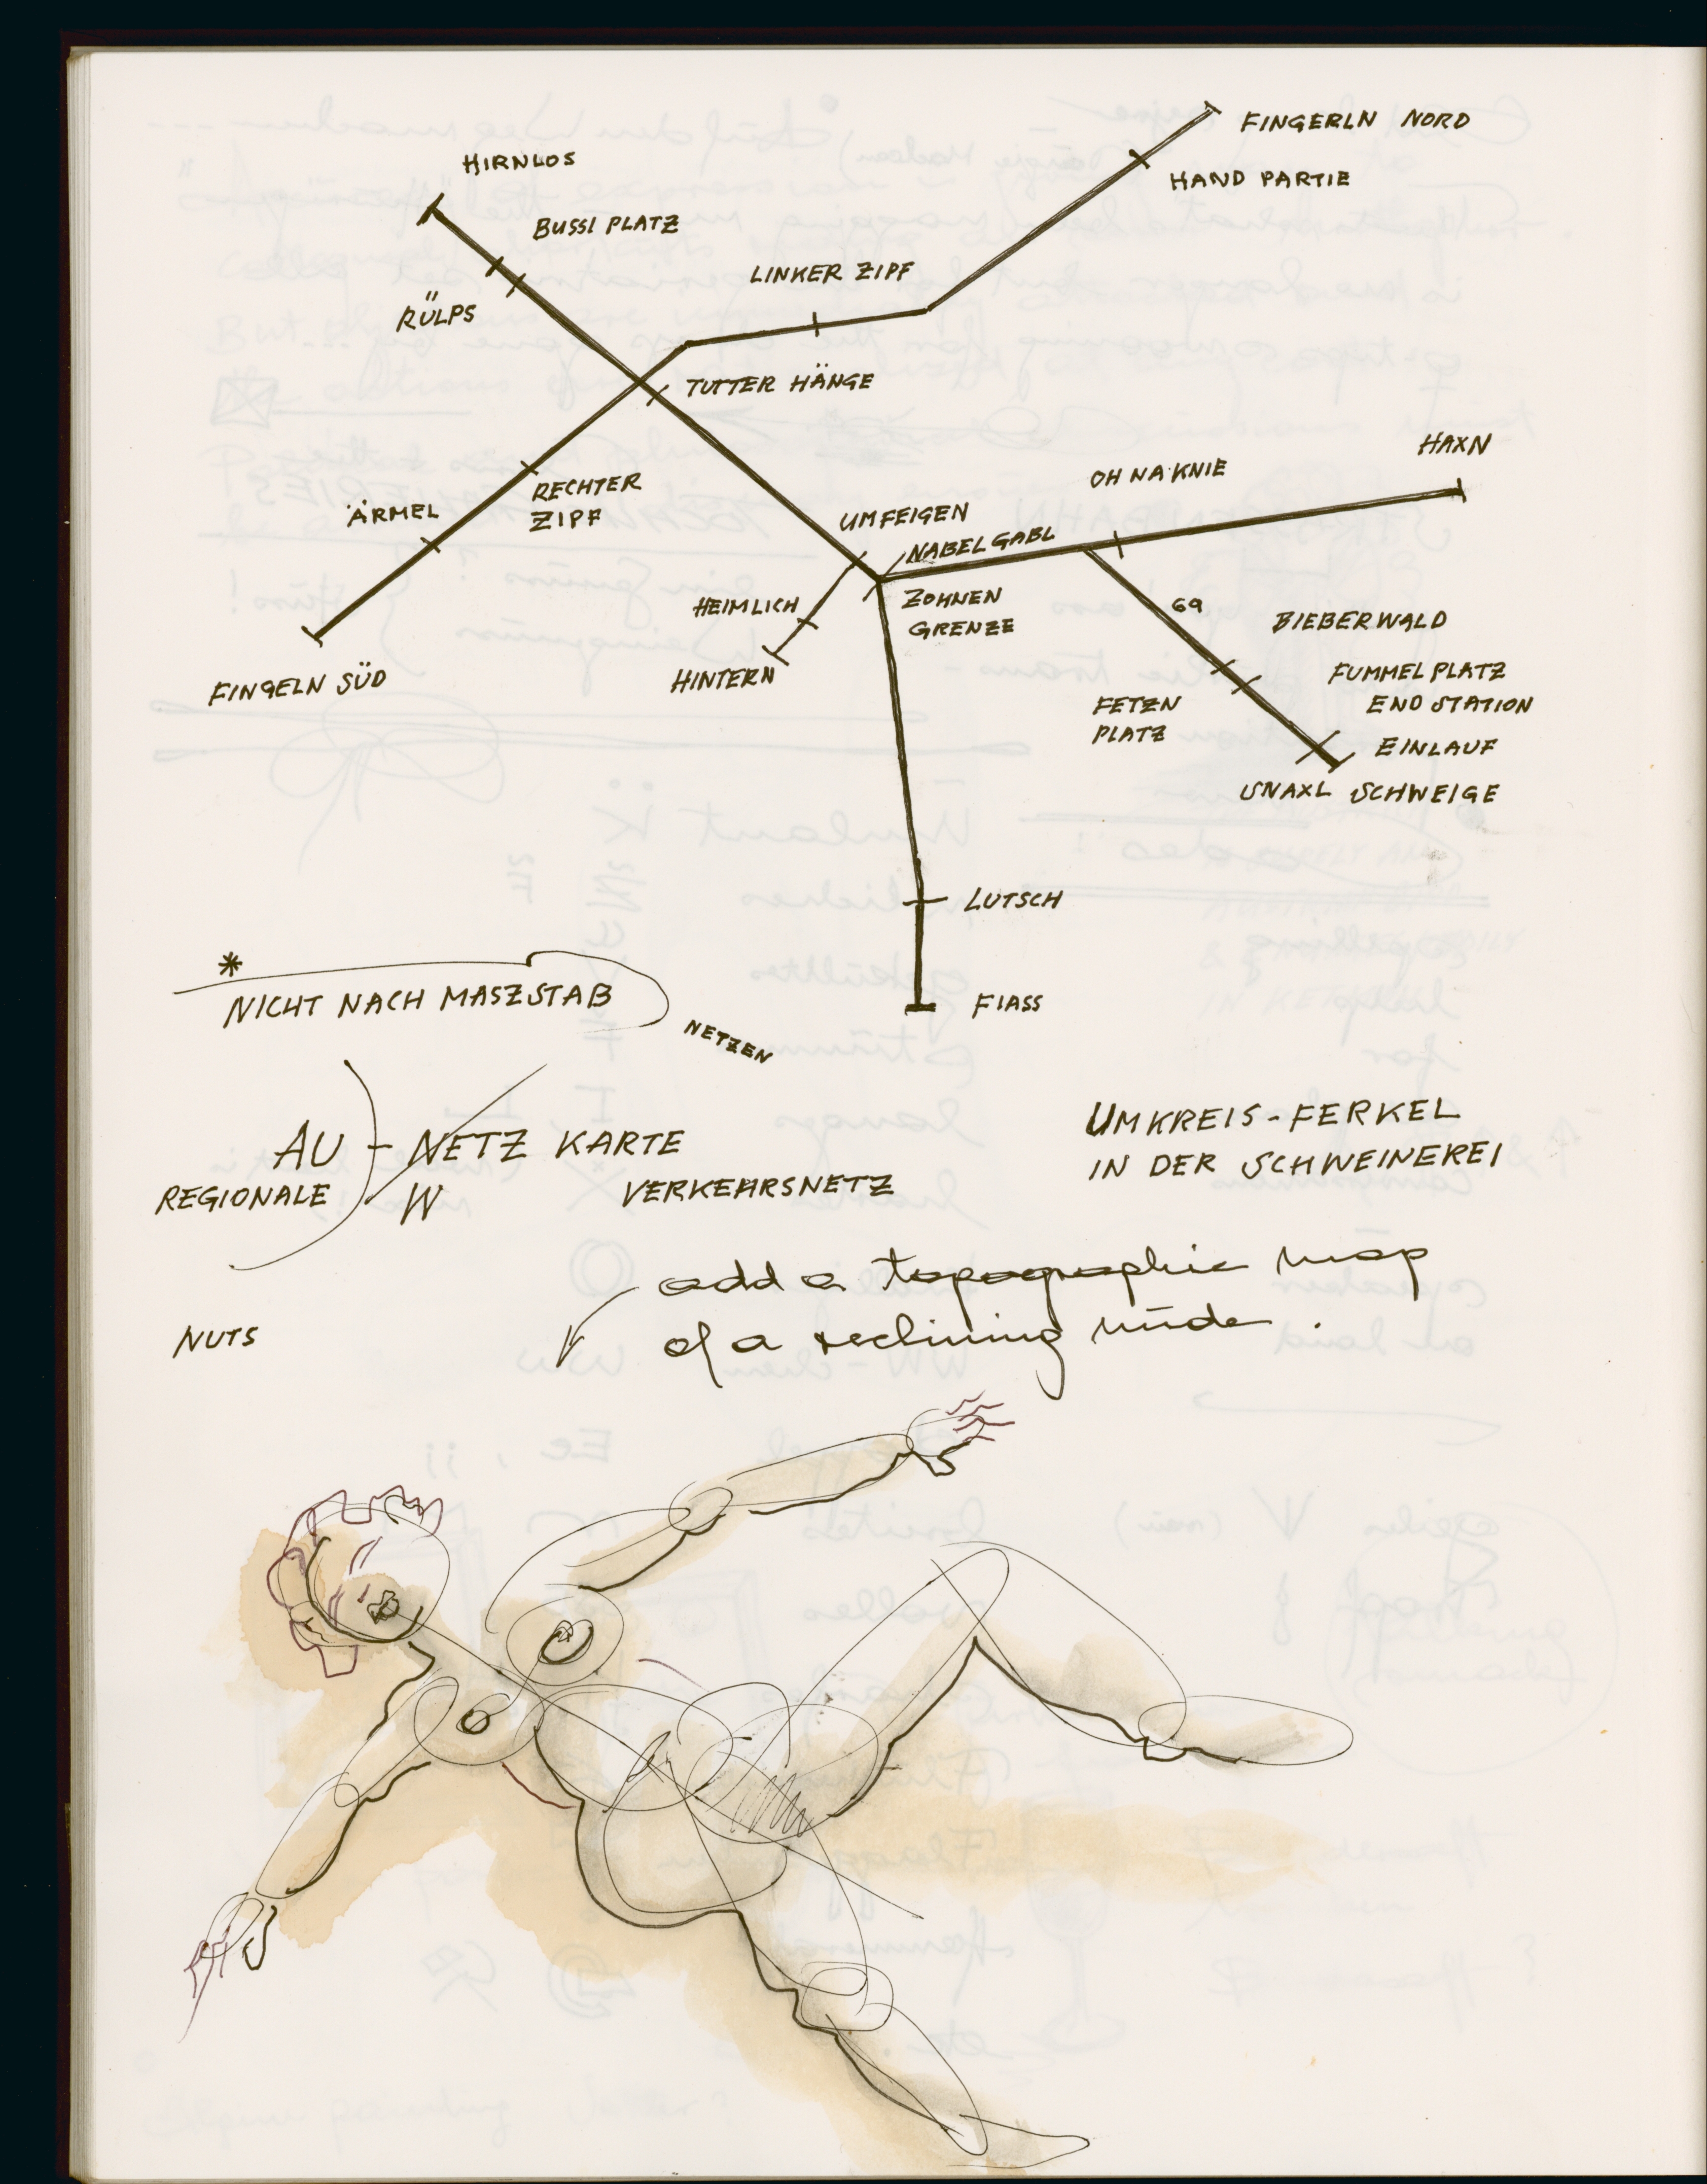 FINGERLN NORD
HIRNLOS
HAND PARTIE
BUSSI PLATZ
LINKER ZIPF
RÜLPS
TUTTER HÄNGE
HAXN
OH NA KNIE
RECHTER
ZIPF
ÄRMEL
UMFEIGEN
NABEL GABL
HEIMLICH
ZOHNEN
GRENZE
69
BIEBERWALD
HINTERN
FINGELN SÜD
FUMMEL PLATZ
END STATION
FETZN
PLATZ
EINLAUF
SNAXL SCHWEIGE
LUTSCH
*
NICHT NACH MASZSTAB
FIASS
NETZEN
AU - NETZ KARTE
REGIONALE
W
VERKEHRSNETZ
UMKREIS-FERKEL
IN DER SCHWEINEREI
add a topographic map
of a reclining nude.
NUTS